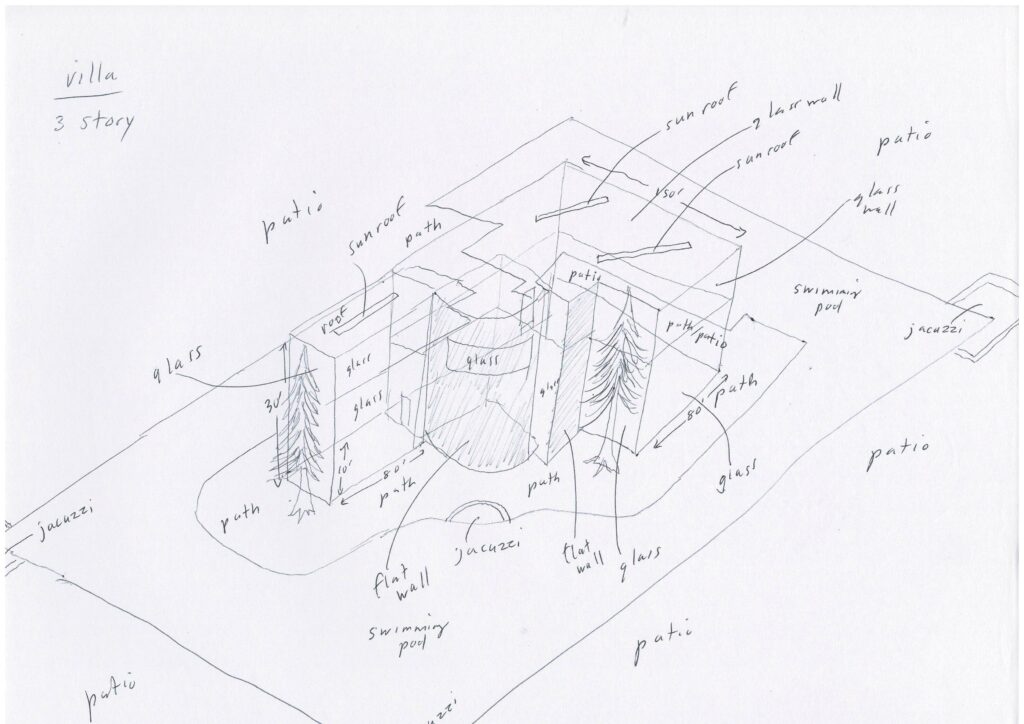 villa
3 story
sunroof
glass wall
sunroof
patio
glass
wall
150'
patio
sunroof
path
patio
roof
swimming
pool
jacuzzi
path/
patio
glass
glass
glass
30'
glass
glass
10'
80'
path
80' path
glass
patio
path
path
jacuzzi
jacuzzi
flat
wall
flat
wall
glass
swimming
pool
patio
patio
uzzi